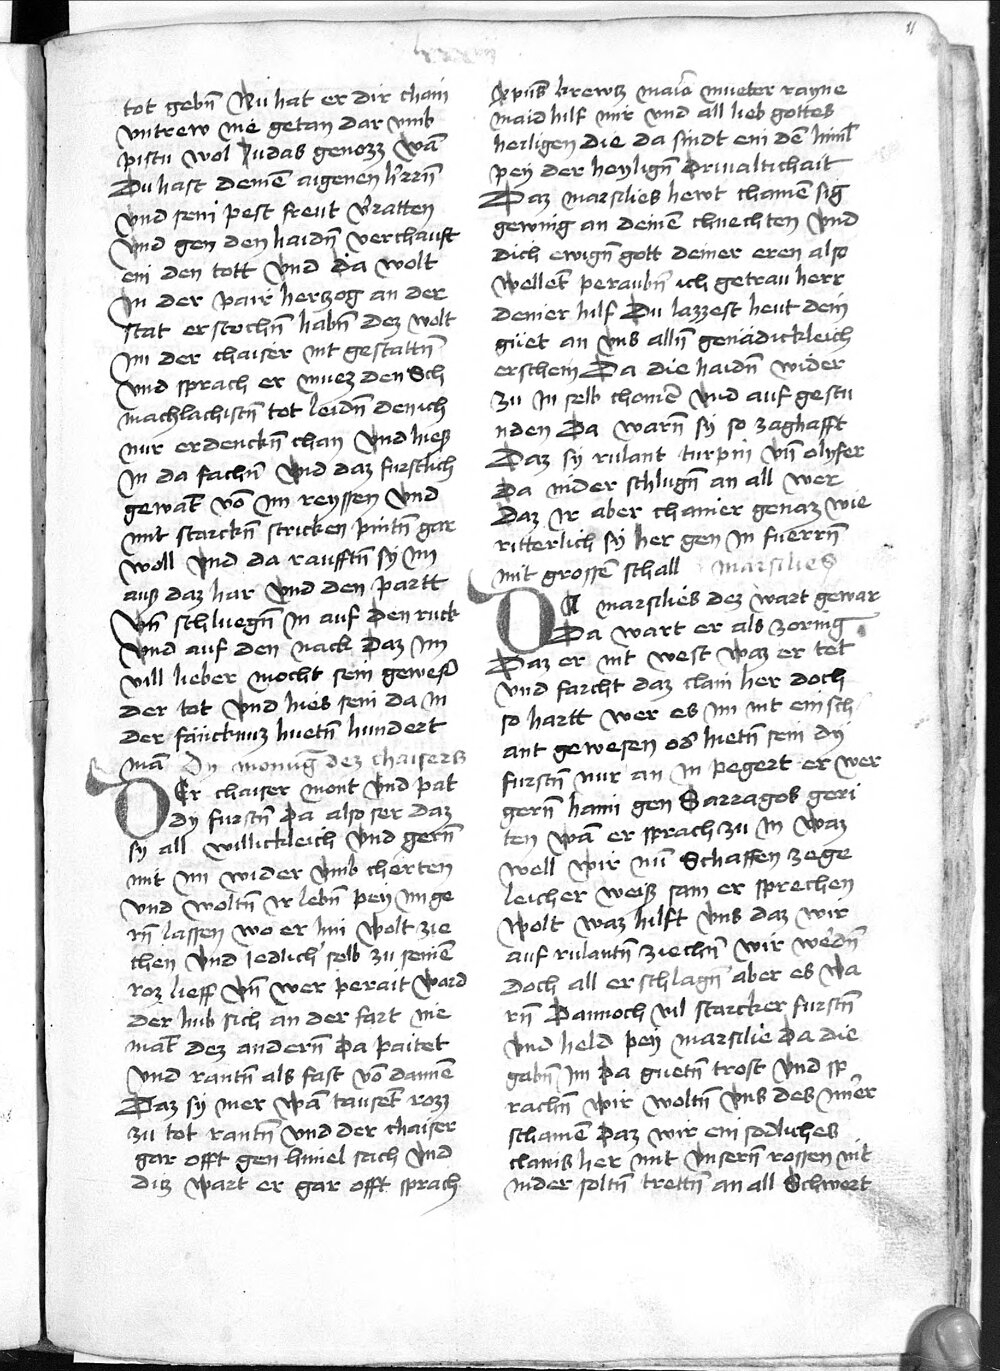 11
tot gebn̄ Wu hat er dir chain
vntrew nie getan dar vmb
pistu wol Judas genozz wā
Du hast deinē aigenen h'rrn̄
vnd sein pest frewt v'ratten
vnd gen den haidn̄ verchauft
ein den tott Vnd da wolt
in der pair herzog an der
stat erstochn̄ habn̄ dez wolt
im der chaiser nit gestattn̄
vnd sprach er muez den Sch
machlachistn̄ tot leidn̄ den ich
nur erdenckn̄ chan Vnd hieß
in da fachn̄ Vnd daz furstlich
gewāt vō im reyssen Vnd
mit starckn̄ stricken pintn̄ gar
woll Vnd da raufftn̄ sy im
auß daz har Vnd den partt
Vn̄ schluegn̄ in auf den ruck
vnd auf den nack Daz im
vill lieber mocht sein gewesn̄
der tot Vnd hies sein da in
der fäncknuz huetn̄ hundert
mā Dy monug dez chaisers
DEr chaiser mont Vnd pat
dy furstn̄ Da also ser daz
sy all willickleich Vnd gern̄
mit im wider Vmb cherten
vnd woltn̄ ir lebn̄ pey im ge
rn̄ lassen wo er hin wolt zie
chen Vnd iedlich' selb zu seinē
roz lieff Vn̄ wer perait ward
der hub sich an der fart nie
māt dez andern̄ Da paitet
vnd rantn̄ als fast vō dannē
Daz sy mer wā tausēt rozz
zu tot rantn̄ Vnd der chaiser
gar offt gen himel sach Vnd
diz wart er gar offt sprach
xpūs krewtz maria mueter rayne
maid hilf mir vnd all lieb gottes
heiligen die da sindt ein dē himl̄
pey der heylign̄ Driualtichait
Daz marsilies hewt chainē sig
gewing an deinē chnechten Vnd
dich ewign̄ gott deiner eren also
wellet peraubn̄ ich getrau herr
deiner hilf Du lazzest heut dein
güet an Vns alln̄ genädickleich
erschein Da die haidn̄ wider
zu in selb chomē Vnd auf gestu
nden Da warn̄ sy so zaghafft
Daz sy rulant turpin vn̄ olyfer
Da nider schlugn̄ an all wer
Daz ir aber chainer genaz wie
ritterlich sy her gen in fuerrn̄
mit grossē schall marsilies
DA marsilies dez wart gewar
Da wart er als zornig
Daz er nit west waz er tet
vnd farcht daz clain her doch
so hartt wer es im nit ein sch
ant gewesen od' hietn̄ sein dy
furstn̄ nur an in pegert er wer
gern̄ haim gen Sarragos geri
ten wā er sprach zu in waz
well wir nu Schaffen zege
leicher weiß sam er sprechen
wolt waz hilft Vns daz wir
auf rulantn̄ ziechn̄ wir wedn̄
doch all erschlagn̄ aber es wa
rn̄ Dannoch vil starcker furstn̄
Vnd held pey marsilie Da die
gabn̄ im Da guetn̄ trost Vnd sp
rachn̄ wir woltn̄ Vns des imer
schamē Daz wir ein sodliches
clains her mit Vnsern̄ rossen nit
nider soltn̄ trettn̄ an all Schwert